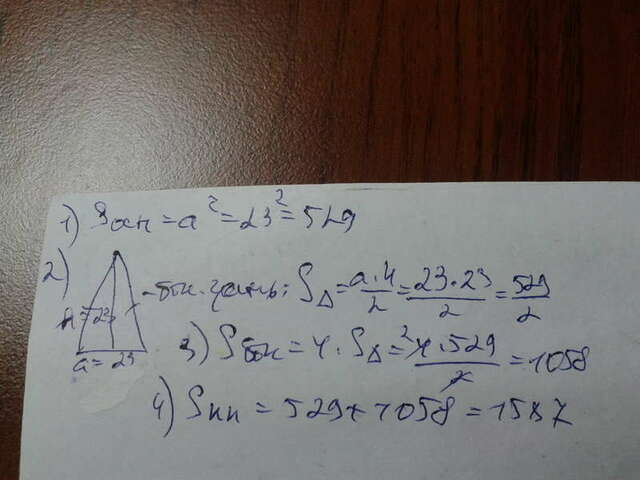 1) Sосн = a² = 23² = 529
2) h = 23 a = 23 - бок. грань: S△ = a·h/2 = 23·23/2 = 529/2
3) Sбок = 4·S△ = ²4·529/2 = 1058
4) Sпп = 529 + 1058 = 1587